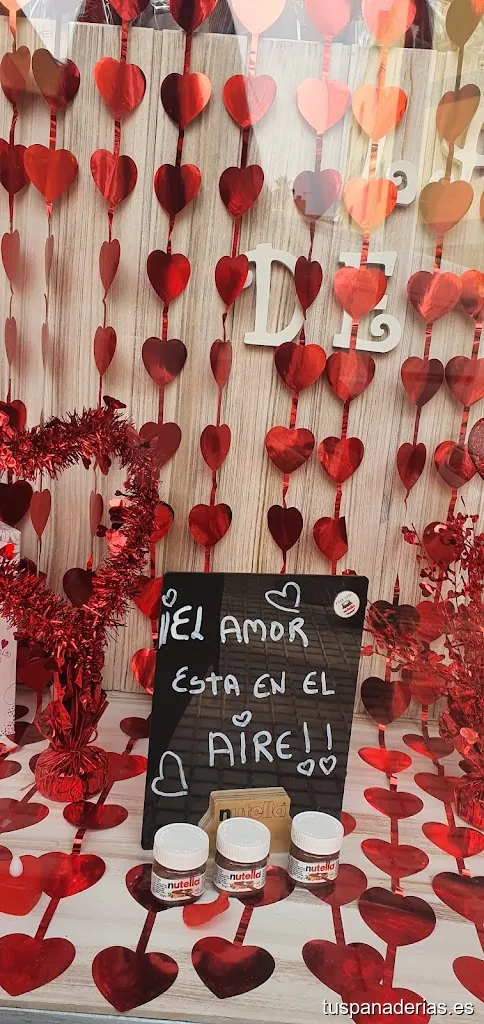 DE
¡¡EL AMOR
ESTA EN EL
AIRE!!
nutella
nutella
nutella
nutella
tuspanaderias.es